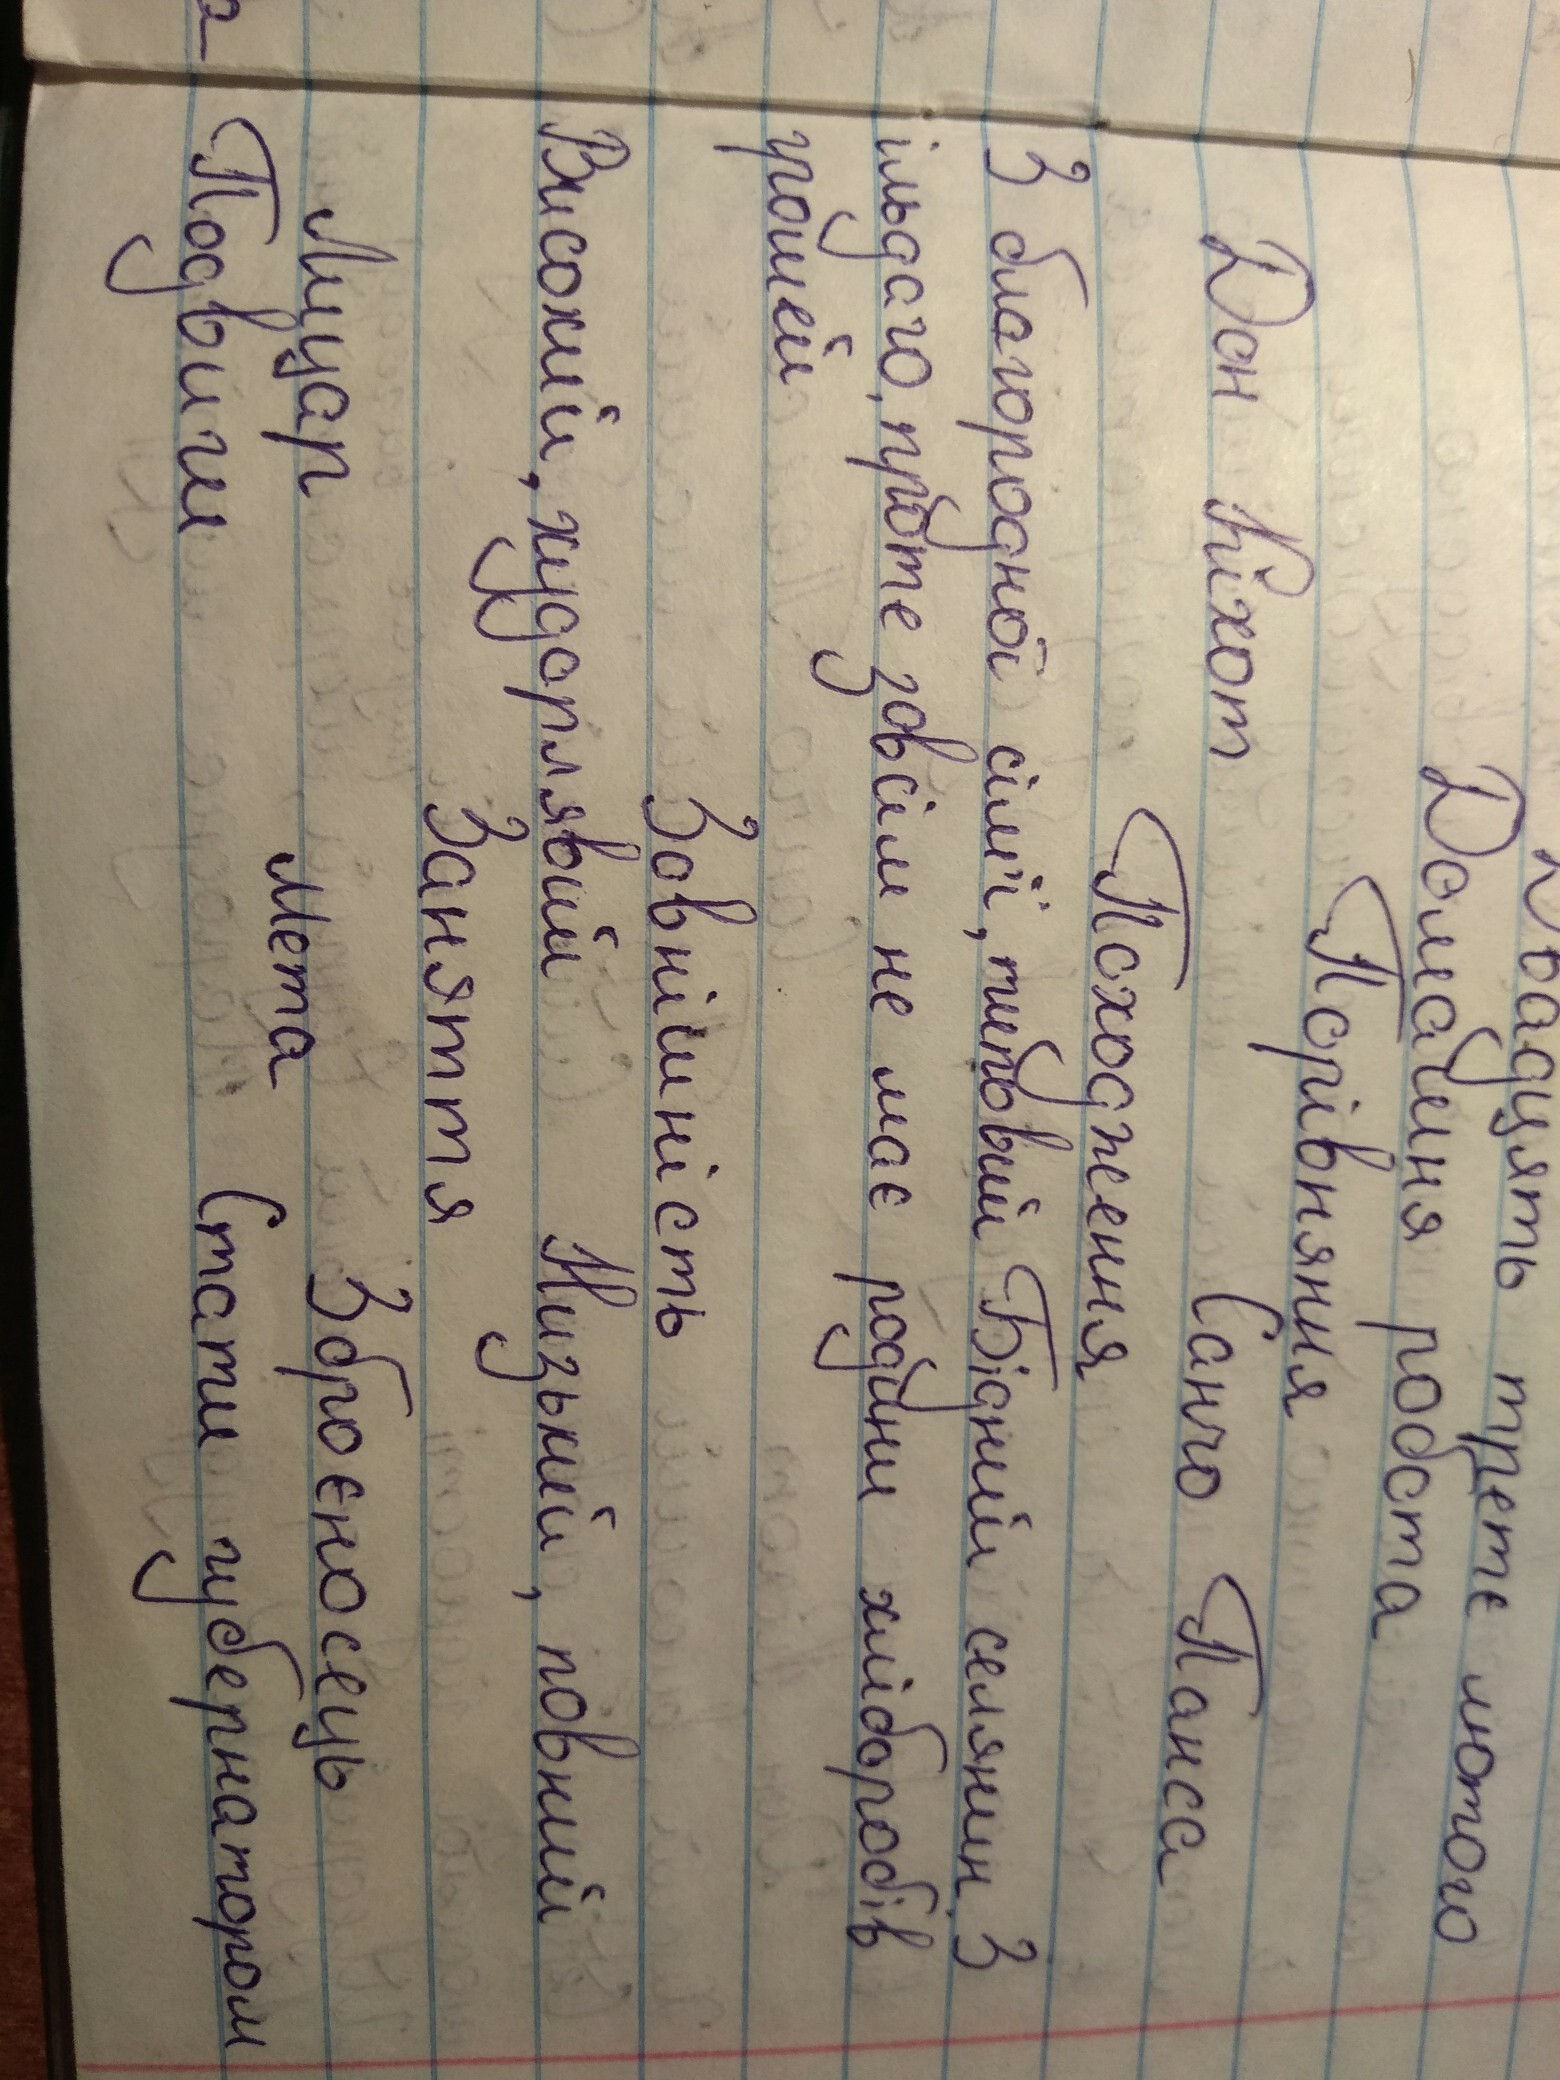 Двадцять третє лютого
Домашня робота
Порівняння
Дон Кіхот Санчо Панса
Походження
З благородної сім'ї, типовий Бідний селянин. З
ільдаго, проте зовсім не має родини хліборобів
грошей
Зовнішність
Високий, худорлявий Низький, повний
Заняття
Лицар Зброєносець
Мета
Подвиги Стати губернатором